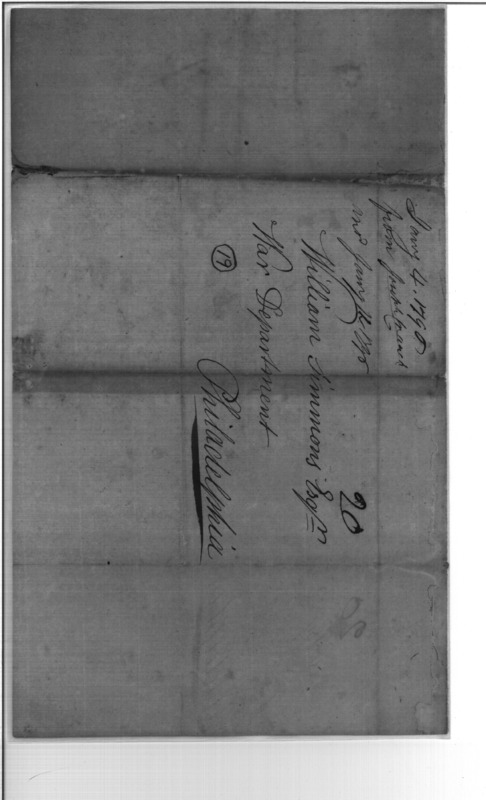 Jany 4. 1798
from
Jany
William Simmons Esqr
War Department
Philadelphia
20
19